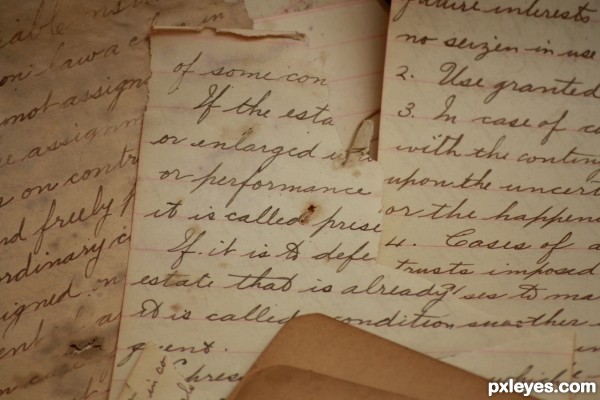 iable
on law a c in
not assign
e assignm
s on contr
nd freely p
rdinary ci
signed on
ent a
of some con
If the esta
or enlarged
or performance
it is called prese
If it is to defe
estate that is already
it is called condition
ent.
prese
in co
future interests
no seizen in use
2. Use granted
3. In case of co
with the conting
upon the uncert
or the happen
4. Cases of a
trusts imposed
ses to ma
another
pxleyes.com